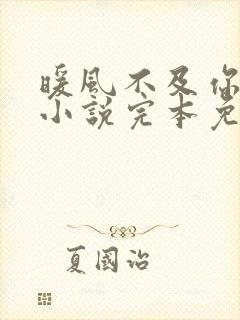 暖風不及你
小說完本免
夏國治